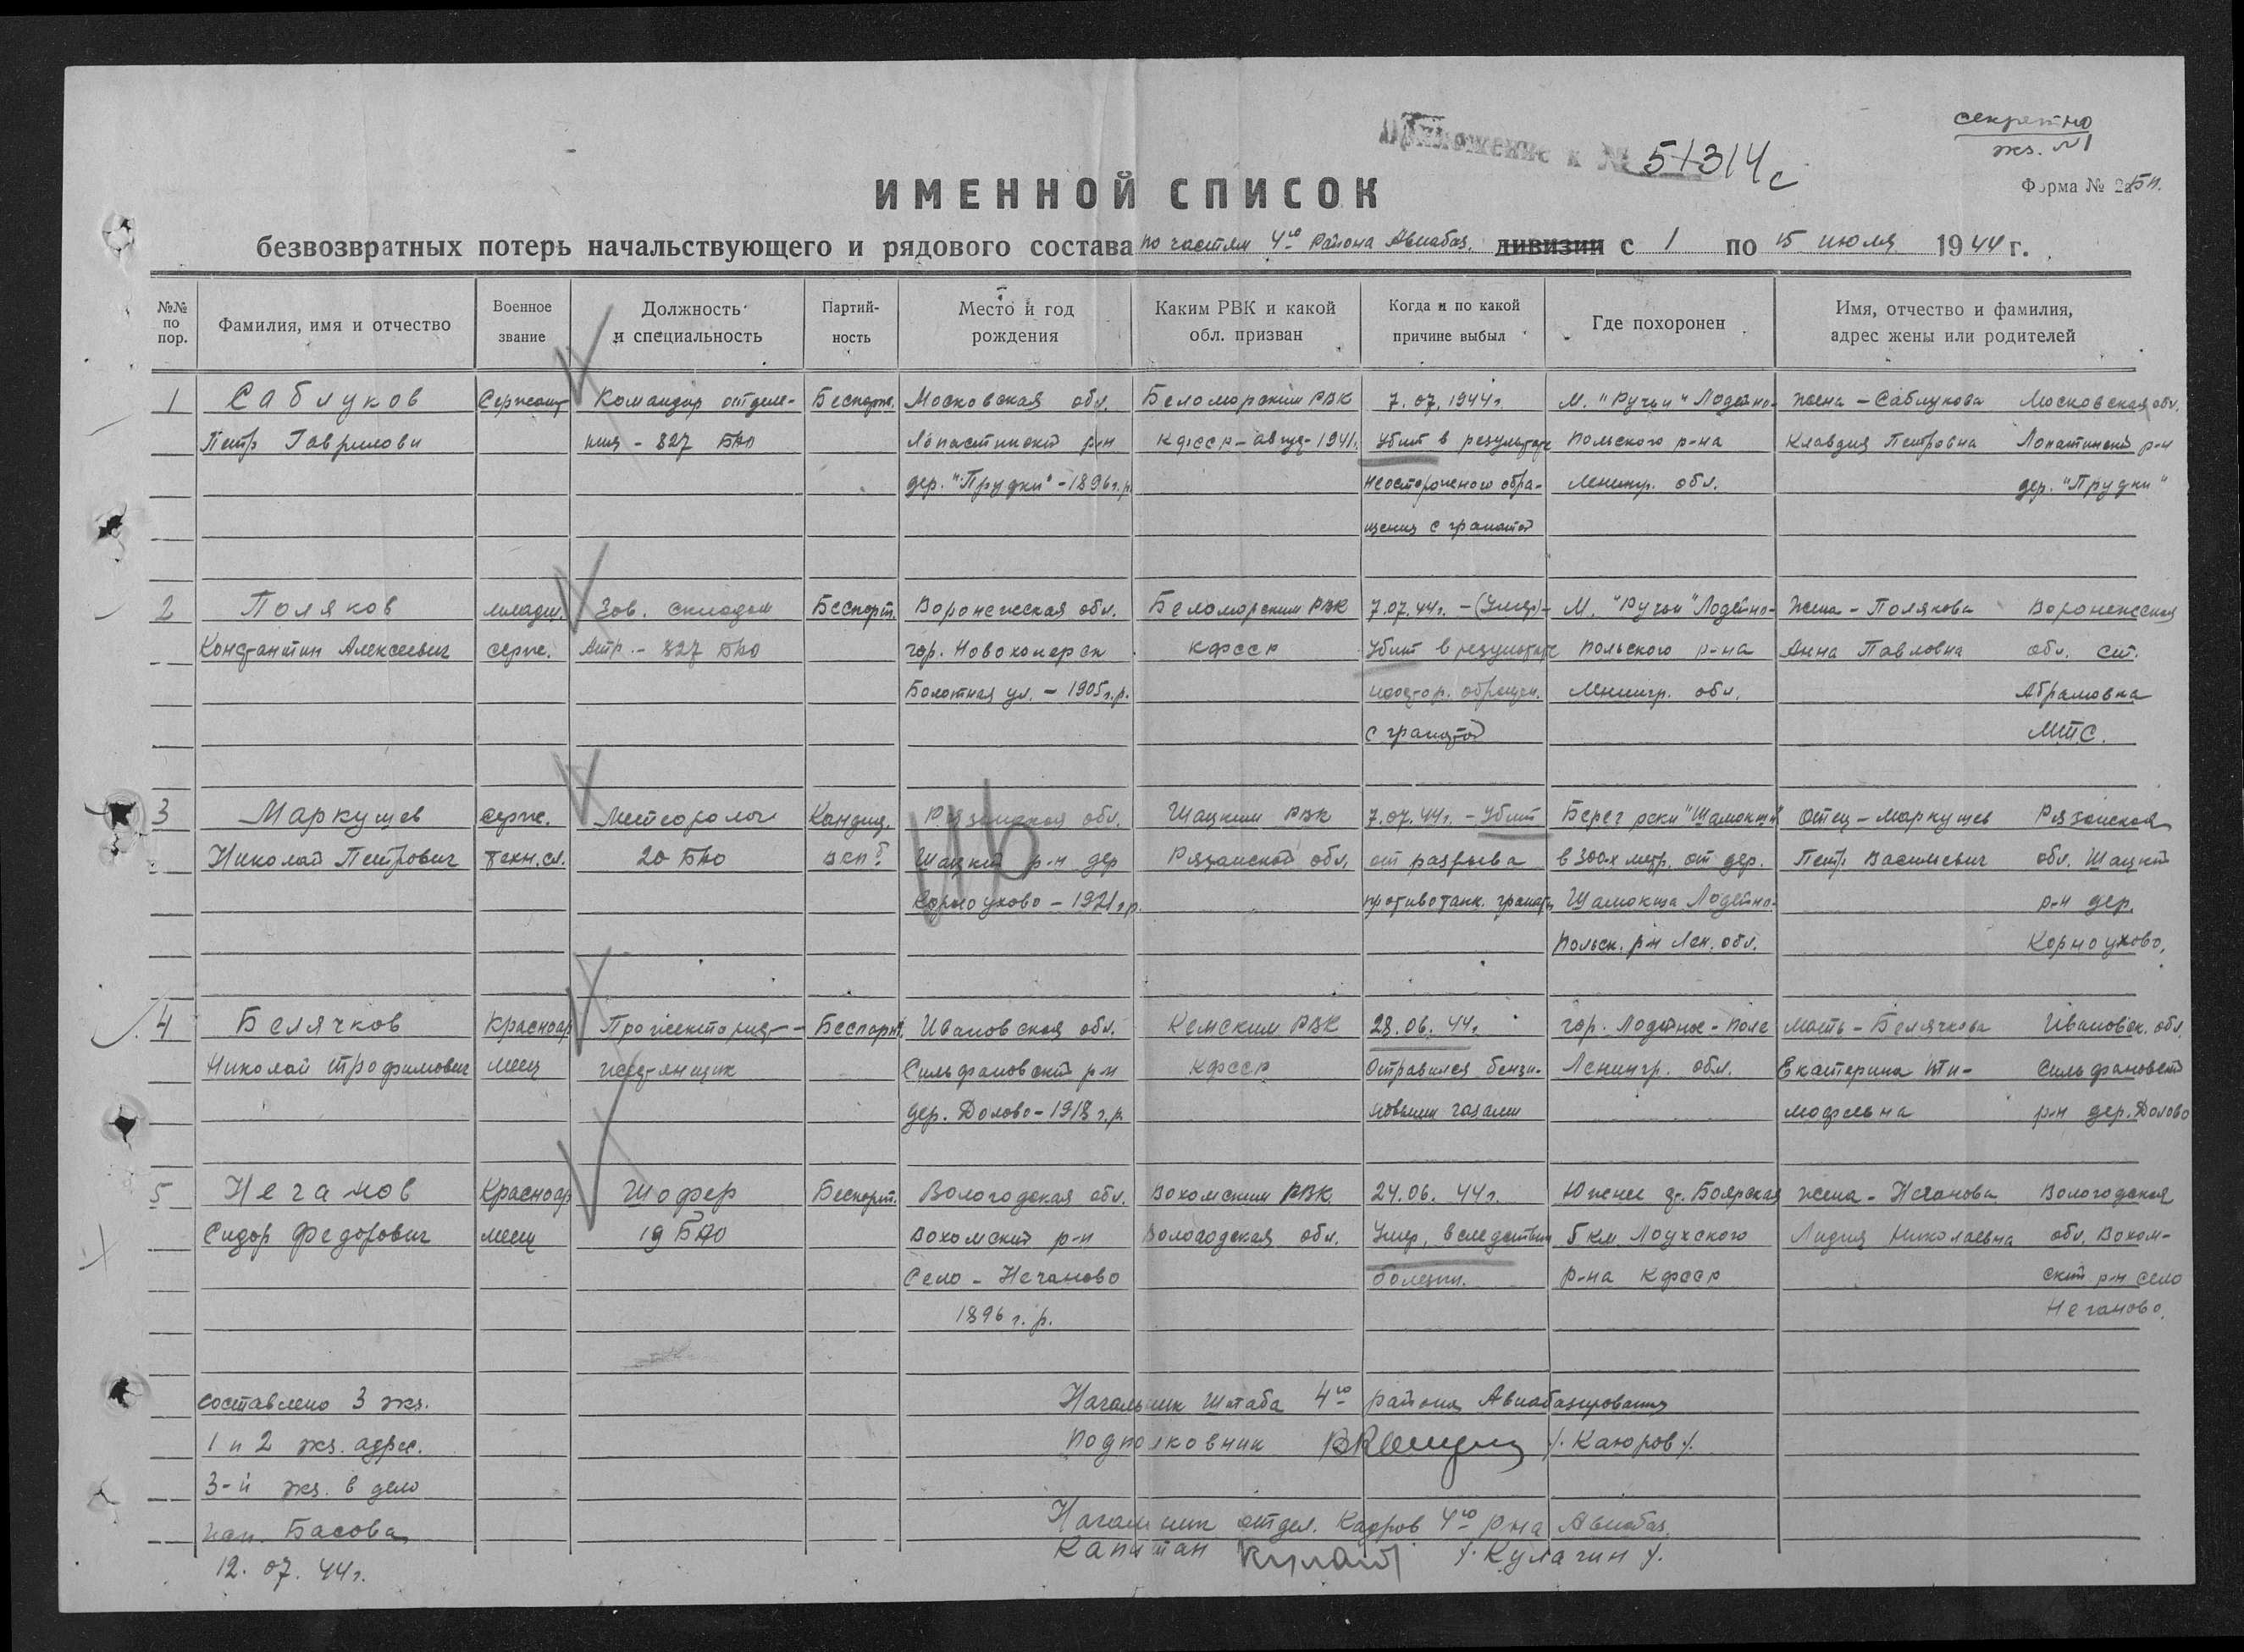 секретно
экз. №1
Приложение к № 51314с
Форма № 2а БП.
ИМЕННОЙ СПИСОК
безвозвратных потерь начальствующего и рядового состава по частям 4го Района Авиабаз. дивизии с 1 по 15 июля 1944 г.
№№ по пор.
Фамилия, имя и отчество
Военное звание
Должность и специальность
Партий-
ность
Место и год рождения
Каким РВК и какой обл. призван
Когда и по какой причине выбыл
Где похоронен
Имя, отчество и фамилия,
адрес жены или родителей
1 Саблуков Сержант Командир отделе- Беспарт. Московская обл. Беломорским РВК 7.07.1944г. М. "Ручьи" Лодейно- жена - Саблукова Московская обл.
Петр Гаврилови ния - 827 БАО Лопастинский р-н КФССР - авгус- 1941г. Убит в результате Польского р-на Клавдия Петровна Лопатинский р-н
дер. "Прудки" - 1896 г.р. неосторожного обра- Ленингр. обл. дер. "Прудки"
щения с гранатой
2 Поляков младш. Зав. складом Беспарт. Воронежская обл. Беломорским РВК 7.07.44г. - (Умер) - М. "Ручьи" Лодейно- жена - Полякова Воронежская
Константин Алексеевич серж. - 827 БАО гор. Новохоперск КФССР Убит в результате Польского р-на Анна Павловна обл. ст.
Болотная ул. - 1905г.р. неостор. обращен. Ленингр. обл. Абрамовка
с гранатой МТС.
3 Маркушев серж. Метеоролог Кандид. Рязанская обл. Шацким РВК 7.07.44г. - Убит Берег реки "Шамокша" отец - Маркушев Рязанская
Николай Петрович техн. сл. 20 БАО ВКПб Шацкий р-н дер Рязанской обл. от разрыва в 300-х метр. от дер. Петр Васильевич обл. Шацкий
Корноухово - 1921 г.р. противотанк. гранаты Шамокша Лодейно- р-н дер.
Польск. р-н Лен. обл. Корноухово.
4 Белячков Красноар Прожекторист- Беспарт. Ивановская обл. Кемским РВК 28.06.44г. гор. Лодейное-Поле мать - Белячкова Ивановск. обл.
Николай Трофимович меец КФССР Отравился бензи- Ленингр. обл. Екатерина Ти- Сильфановский
Сильфановский р-н
дер. Долово - 1918 г.р. новыми газами мофевна р-н дер. Долово
5 Нечанов Красноар Шофер Беспарт. Вологодская обл. Вохомским РВК 24.06.44г. Южнее д. Боярская жена - Нечанова Вологодская
Сидор Федорович меец 19 БАО Вохомский р-н Вологодская обл. Умер, вследствии 5 км Лоухского Лидия Николаевна обл. Вохом-
Село - Нечаново болезни. р-на КФССР ский р-н село
1896 г.р. Нечаново.
составлено 3 экз.
1 и 2 экз. адрес.
3-й экз. в дело
исп. Басова
12.07.44г.
Начальник Штаба 4го района Авиабазирования
Подполковник /. Каюров /.
Начальник отдел. Кадров 4го р-на Авиабаз.
Капитан Кулагин /. Кулагин /.